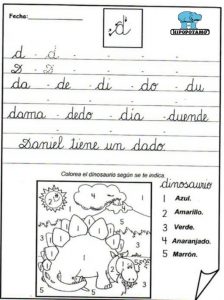 Fecha:
HIPOPOTAMO
d
d - d - - - -
D - D - - - -
da - de - di - do - du
dama - dedo - día - duende
Daniel tiene un dado.
Colorea el dinosaurio según se te indica.
dinosaurio
1 Azul.
2 Amarillo.
3 Verde.
4 Anaranjado.
5 Marrón.